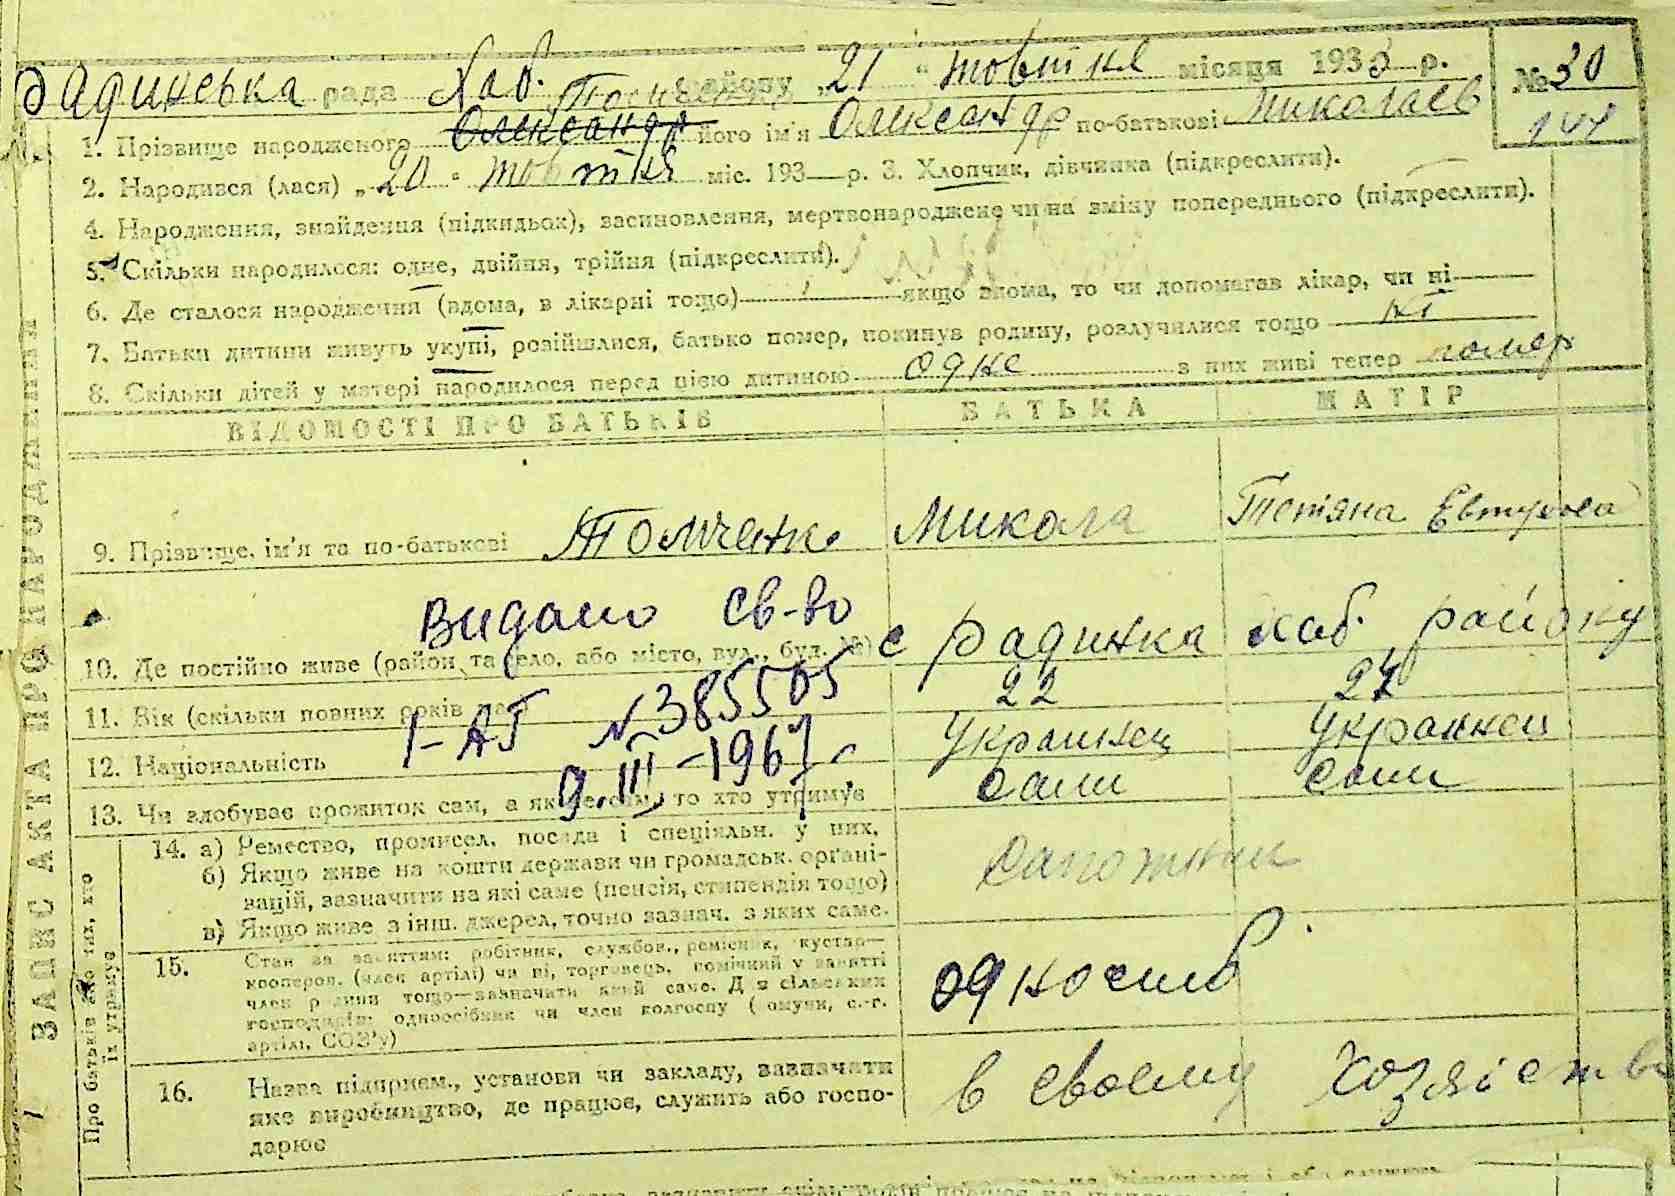 Радинська рада Хаб. району „21“ жовтня місяця 1933 р. № 30
1. Прізвище народженого Олександр його ім'я Олександр по-батькові Миколаєв 144
2. Народився (лася) „20“ жовтня міс. 193— р. 3. Хлопчик, дівчинка (підкреслити).
4. Народження, знайдення (підкидьок), засиновлення, мертвонароджене чи на зміну попереднього (підкреслити).
5. Скільки народилося: одне, двійня, трійня (підкреслити).
6. Де сталося народження (вдома, в лікарні тощо) — якщо вдома, то чи допомагав лікар, чи ні —
7. Батьки дитини живуть укупі, розійшлися, батько помер, покинув родину, розлучилися тощо ні
8. Скільки дітей у матері народилося перед цією дитиною одне з них живі тепер помер
ВІДОМОСТІ ПРО БАТЬКІВ БАТЬКА МАТІР
9. Прізвище, ім'я та по-батькові Микола Тетяна
Видано св-во
10. Де постійно живе (район та село, або місто, вул., буд. №) с Радинка Хаб. району
11. Вік (скільки повних років 22
I-АГ № 385505
12. Національність Украинец Украинец
9.III-1967.
13. Чи здобуває прожиток сам, а як не сам, то хто утримує сами сами
14. а) Ремество, промисел, посада і спеціяльн. у них.
б) Якщо живе на кошти держави чи громадськ. органі-
зацій, зазначити на які саме (пенсія, стипендія тощо)
в) Якщо живе з інш. джерел, точно зазнач. з яких саме.
Сапожник
15. Стан за заняттям: робітник, службов., ремісник, кустар—
кооперов. (член артілі) чи ні, торговець, помічний у занятті
член родини тощо—зазначити який саме. Для сільських
господарів: одноосібник чи член колгоспу (комуни, с.-г.
артілі, СОЗ'у)
односиб
16. Назва підприєм., установи чи закладу, зазначати
яке виробництво, де працює, служить або госпо-
дарює
в своему хозяіство
ЗАПИС АКТА ПРО НАРОДЖЕННЯ
Про батьків або тих, хто
їх утримує